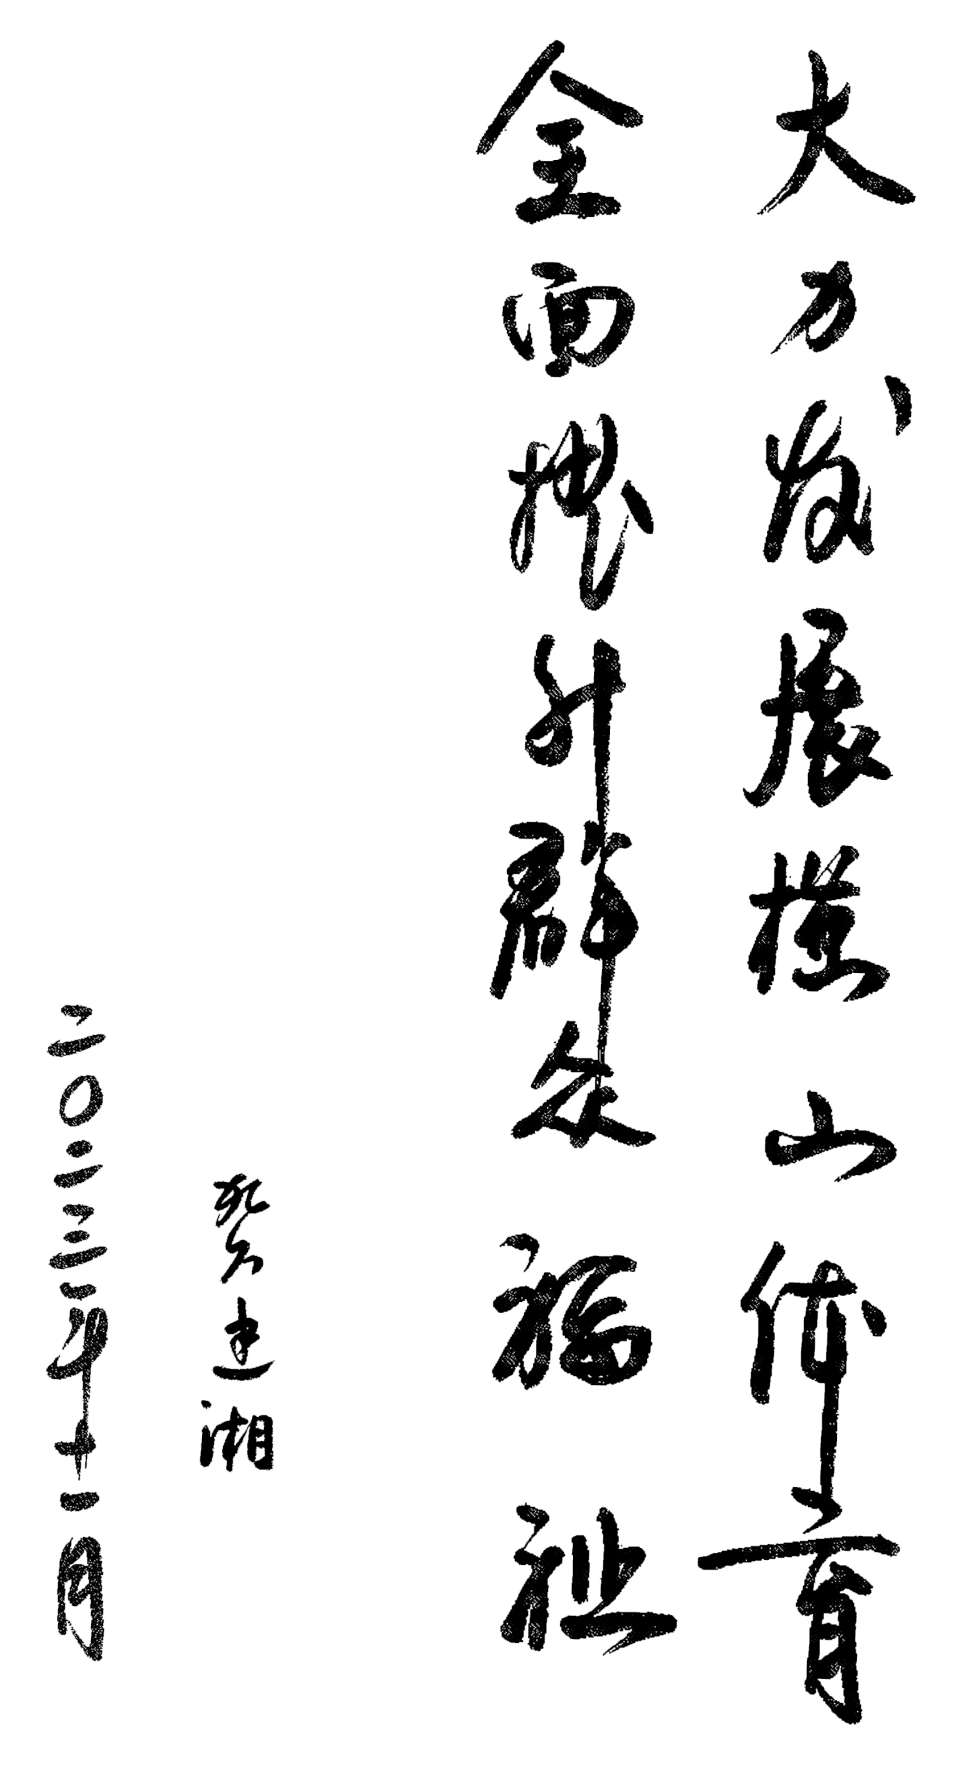 大力发展横山体育
全面提升群众福祉
贺建湘
二〇二三年十一月